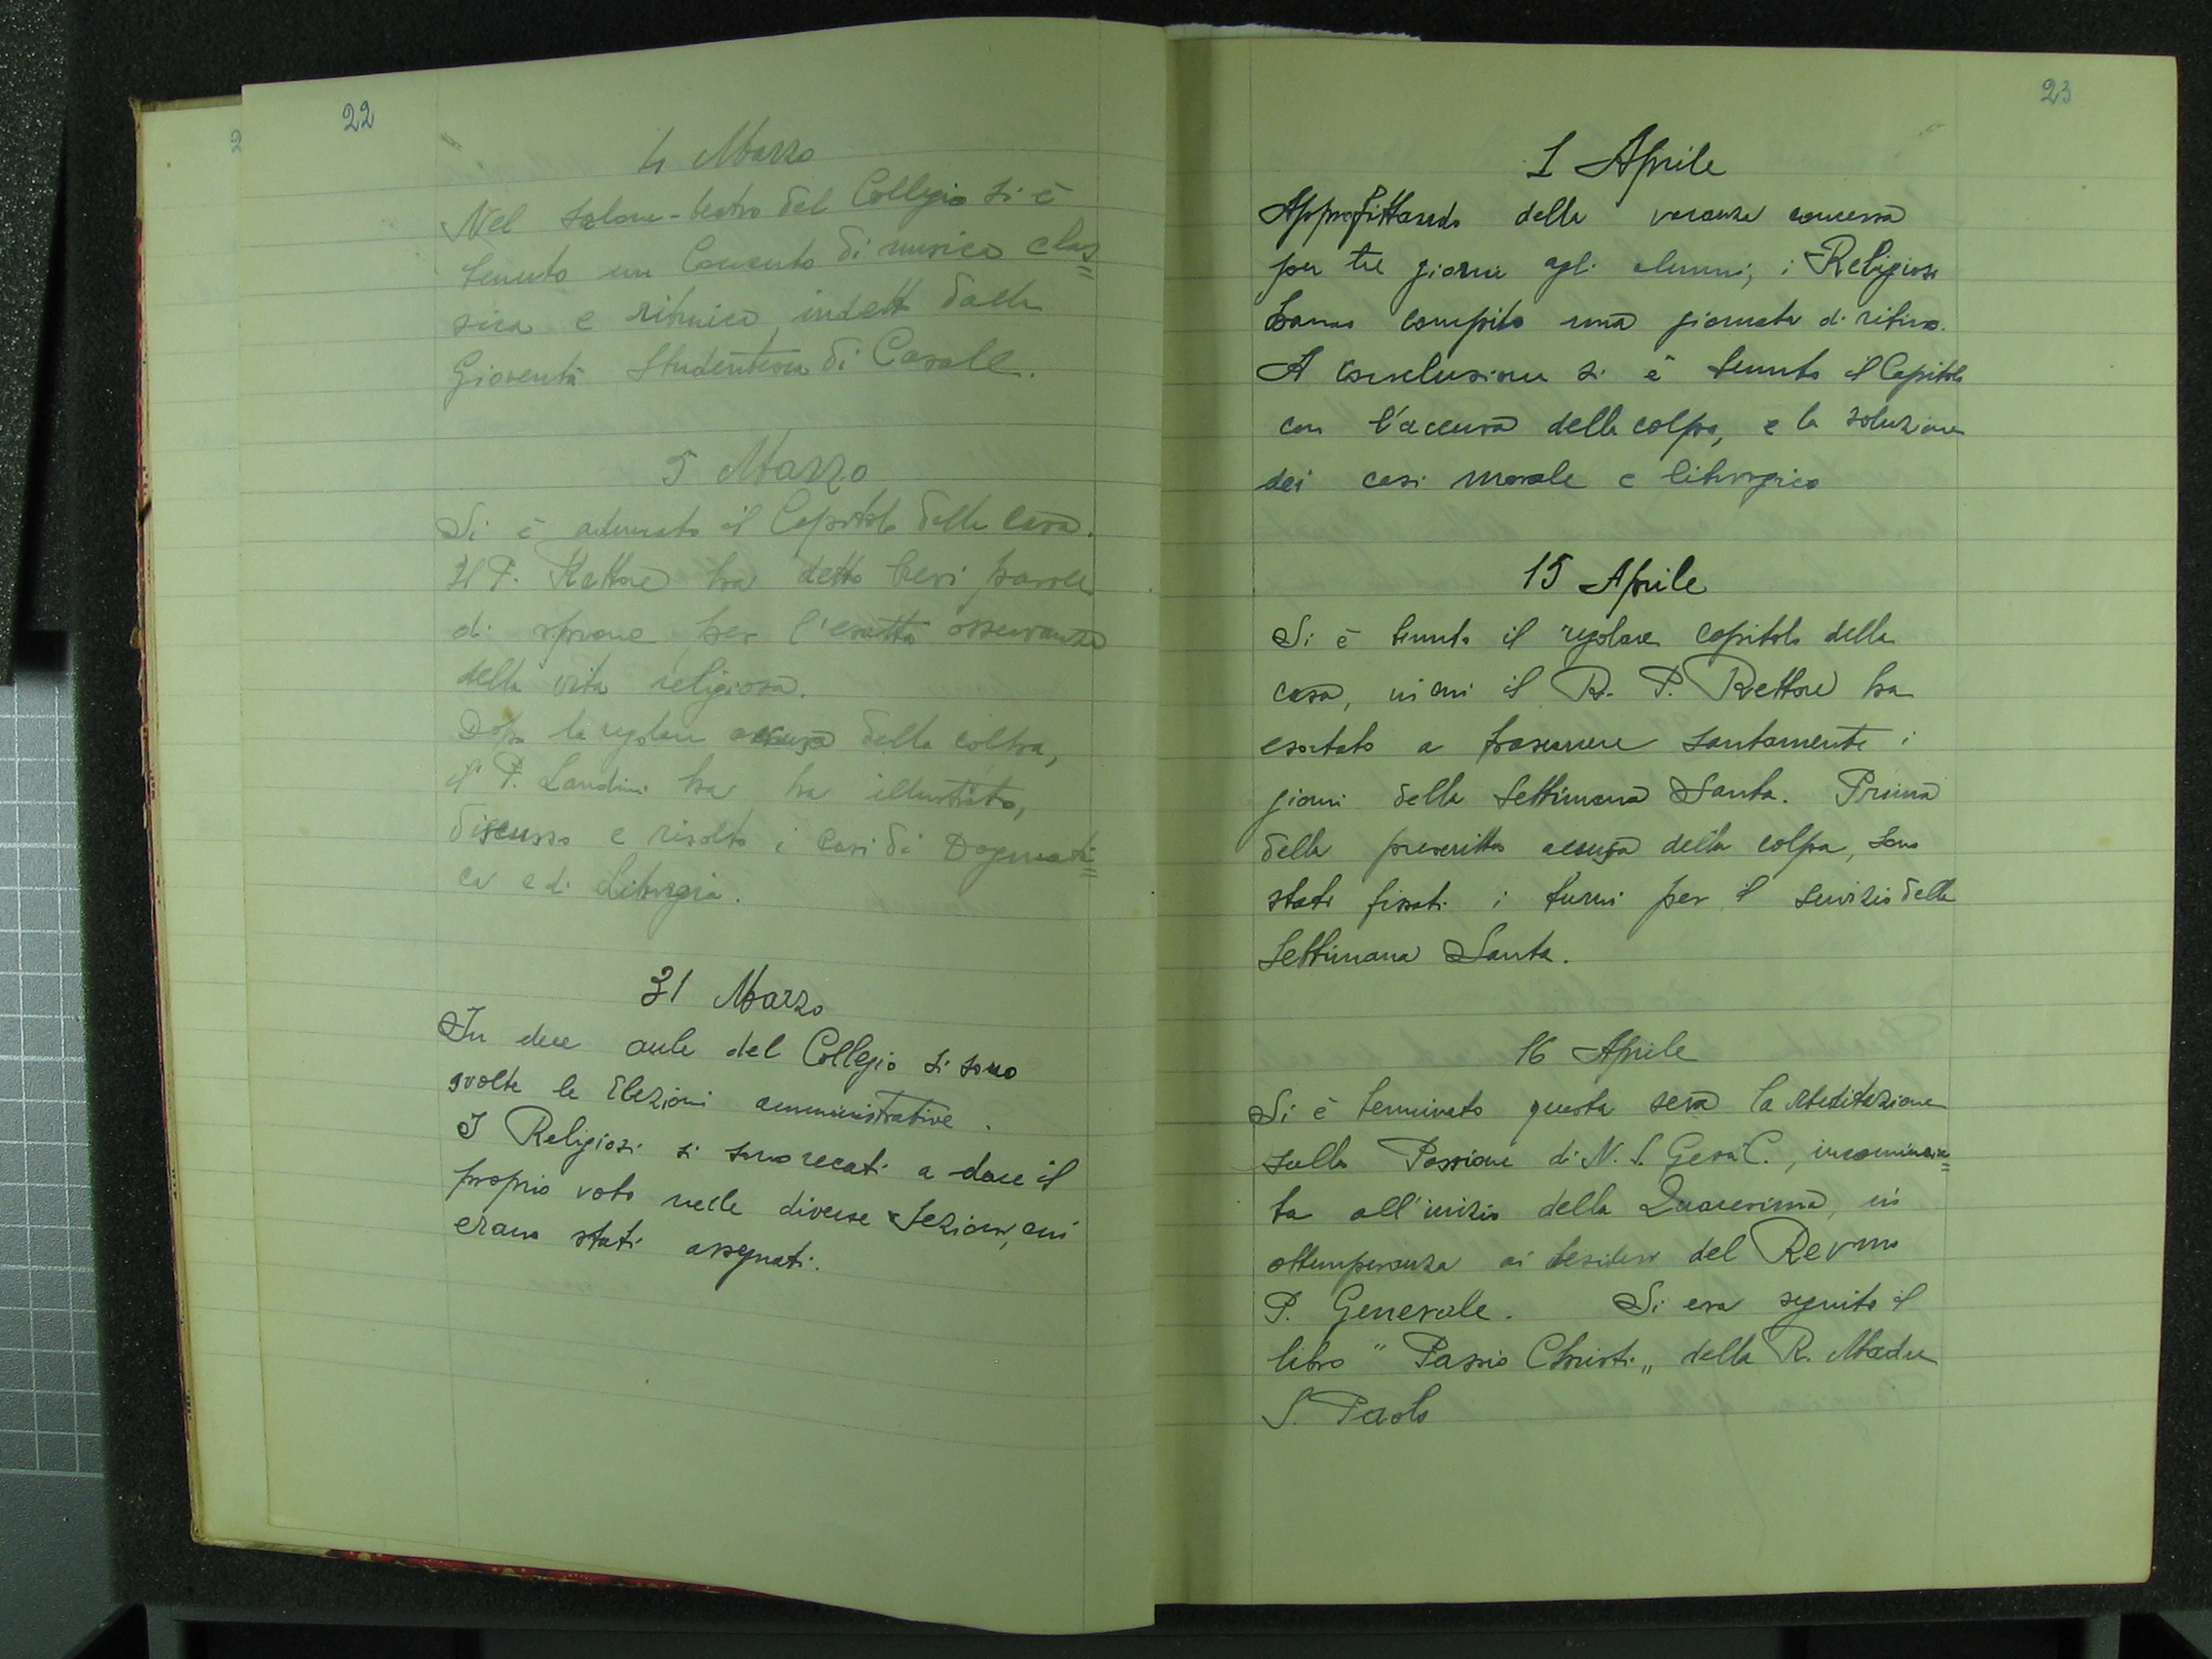 22
4 Marzo
Nel salone-teatro del Collegio si è
tenuto un Concerto di musica clas=
sica e ritmica, indett dalla
Gioventù Studentesca di Casale.
5 Marzo
Si è adunato il Capitolo della Casa.
Il P. Rettore ha detto brevi parole
di sprone per l'esatta osservanza
della vita religiosa.
Dopo la regolare accusa della colpa,
il P. Landini ha ha illustrato,
discusso e risolto i Casi di Dogmati=
ca e di Liturgia.
31 Marzo
In due aule del Collegio si sono
svolte le Elezioni amministrative.
I Religiosi si sono recati a dare il
proprio voto nelle diverse Sezioni, cui
erano stati assegnati.
23
1 Aprile
Approfittando della vacanza concessa
per tre giorni agli alunni, i Religiosi
hanno compito una giornata di ritiro.
A conclusione si è tenuto il Capitolo
con l'accusa della colpa, e la soluzione
dei casi morale e liturgico
15 Aprile
Si è tenuto il regolare capitolo della
casa, in cui il R. P. Rettore ha
esortato a trascorrere santamente i
giorni della Settimana Santa. Prima
della prescritta accusa della colpa, sono
stati fissati i turni per il servizio della
Settimana Santa.
16 Aprile
Si è terminato questa sera la Meditazione
sulla Passione di N. S. Gesù C., incomincia=
ta all'inizio della Quaresima, in
ottemperanza ai desideri del Revmo
P. Generale. Si era seguito il
libro "Passio Christi" della R. Madre
S. Paolo